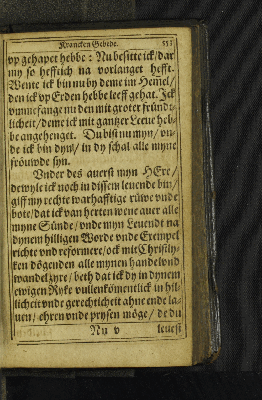 Krancken Gebede. 553
vp gehapet hebbe: Nu besitte ick/dar
my so hefftich na vorlanget hefft.
Wente ick bin nu by dem im Hemel/
den ick vp Erden hebbe leeff gehat. Ick
vmmefange nu den mit groter fründt-
licheit/deme ick mit gantzer Leeue heb-
be angehenget. Du bist nu myn/ vn-
de ick bin dyn/ in dy schal alle myne
fröuwde syn.
Vnder des auerst myn HEre/
dewyle ick noch in dissem leuende bin/
giff my rechte warhafftige rüwe vnde
bote/dat ick van herten wene auer alle
myne Sünde/ vnde myn Leuendt na
dynem hilligen Worde vnde Exempel
richte vnd reformere/ock mit Christly-
ken dögenden alle mynen handel vnd
wandel zyre/ beth dat ick dy in dynem
ewigen Ryke vullenkömentlick in hil-
licheit vnde gerechticheit ahne ende la-
uen/ ehren vnde prysen möge/ de du
Nn v leuest